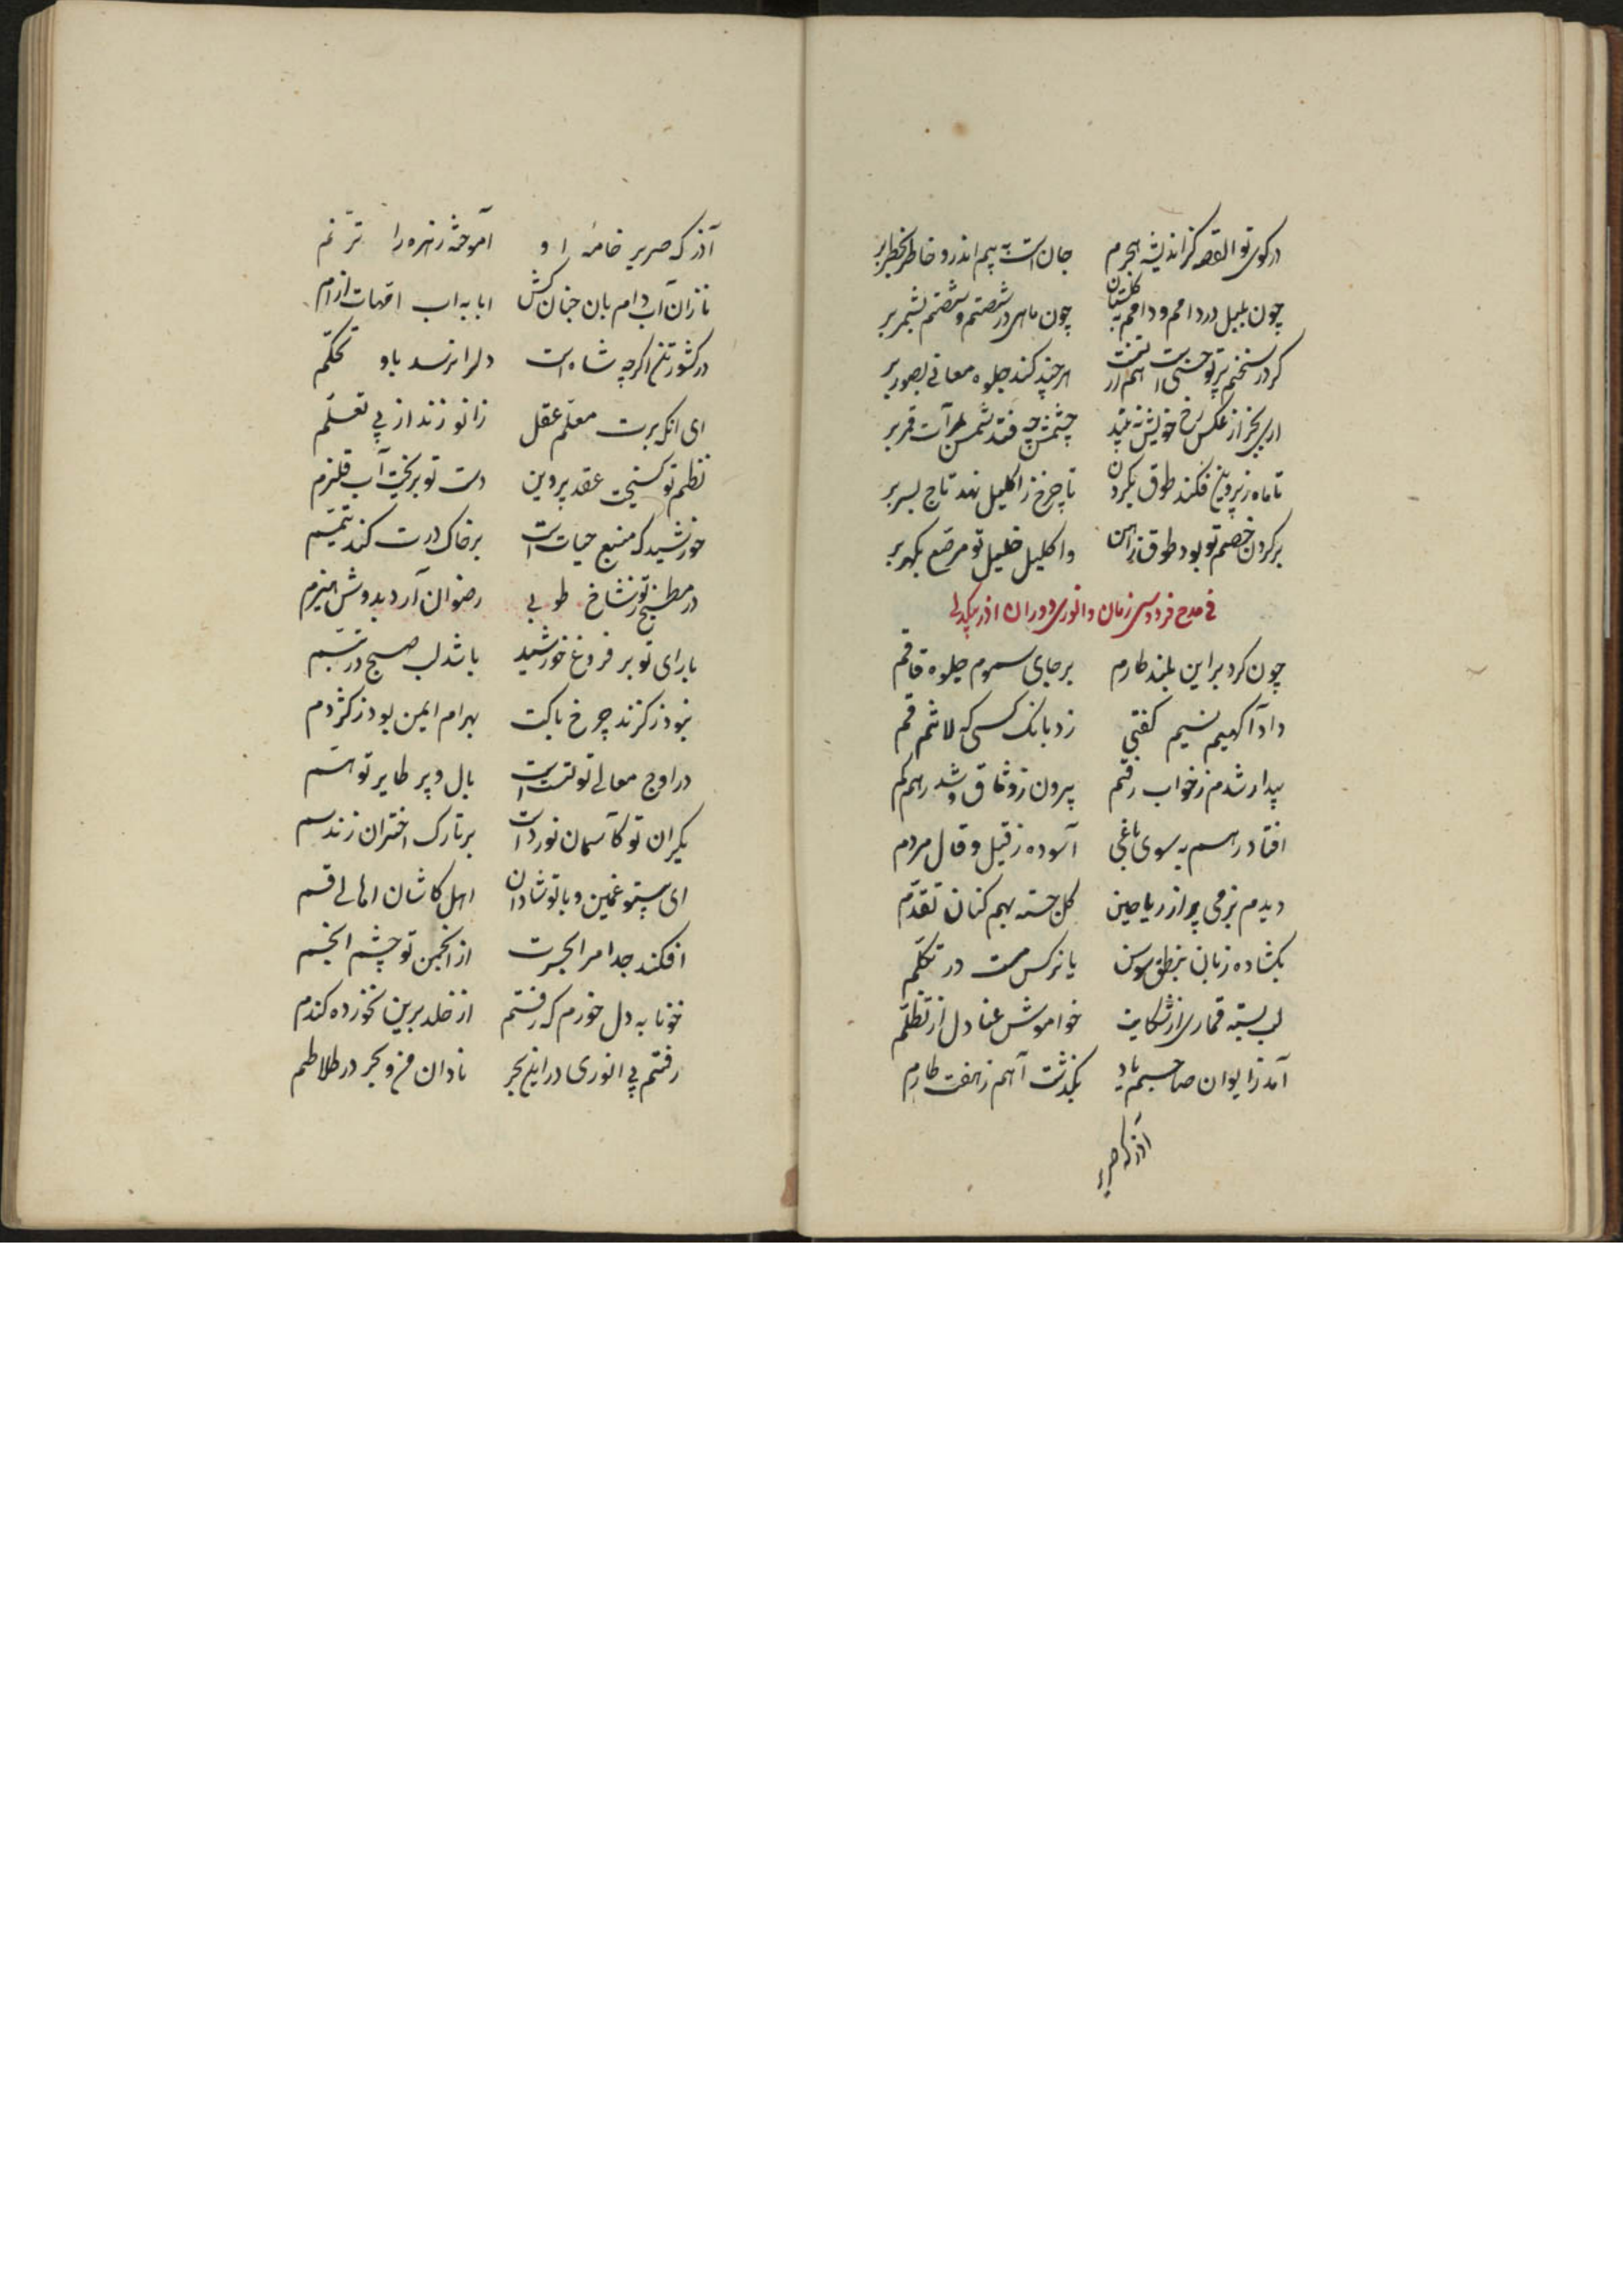 در کوی تو القصه کز اندیشه هجرم جان است به بیم اندر و خاطر بخطر بر
چون بلبل در دامم و دامم به گلستان چون ماهی در شصتم و شصتم بشمر بر
گر در سخنم پرتو حسنی است هر چند کند جلوه معانی بصور بر
از عکس رخ خویش چشمش چه فتد قمر بر
تا ماه ز پروین فکند طوق بگردن تا چرخ ز اکلیل نهد تاج بسر بر
بر گردن خصم تو بود طوق ز آهن و اکلیل خلیل تو مرصع بگهر بر
فی مدح فردوسی زمان و انوری دوران اذر بیکدلی
چون کرد بر این بلند طارم بر جای سموم جلوه قاقم
داد آگهیم نسیم گفتی زد بانک کسی که لا تنم قم
بیدار شدم ز خواب رفتم بیرون ز وثاق و شد رهم گم
افتاد رهم به سوی باغی آسوده ز قیل و قال مردم
دیدم بزمی پر از ریاحین کل جسته بهم کنان تقدم
بگشاده زبان بنطق سوسن با نرکس مست در تکلم
لب بسته قماری از شکایت خواموش عنادل از تظلم
آمد ز ایوان صاحبم یاد بگذشت آهم ز هفت طارم
آذر که صریر
آذر که صریر خامه او آموخته زهره را ترنم
نازان آب و ام بان چنان کش ابا به اب امهات ازام
در کشور تن اکر چه شاه است دل را نرسد باو تحکم
ای آنکه برت معلم عقل زانو زند از پی تعلم
نظم تو کسیخت عقد پروین دست تو بریخت آب قلزم
خورشید که منبع حیات است بر خاک درت کند تیمم
در مطبخ تو ز شاخ طوبی رضوان آرد بدوش هیزم
با رای تو بر فروغ خورشید باشد لب صبح در تبسم
نبود ز گزند چرخ باکت بهرام ایمن بود ز کژدم
در اوج معالی تو نتست بال و پر طایر توهم
یکران تو کآسمان نورد است بر تارک اختران زند سم
ای بیتو غمین و با تو شادان اهل کاشان اهالی قم
افکند جدا مرا بحسرت از انجمن تو چشم انجم
خونابه دل خورم که رفتم از خلد برین نخورده کندم
رفتم پی انوری در این بحر نادان من و بحر در طلاطم